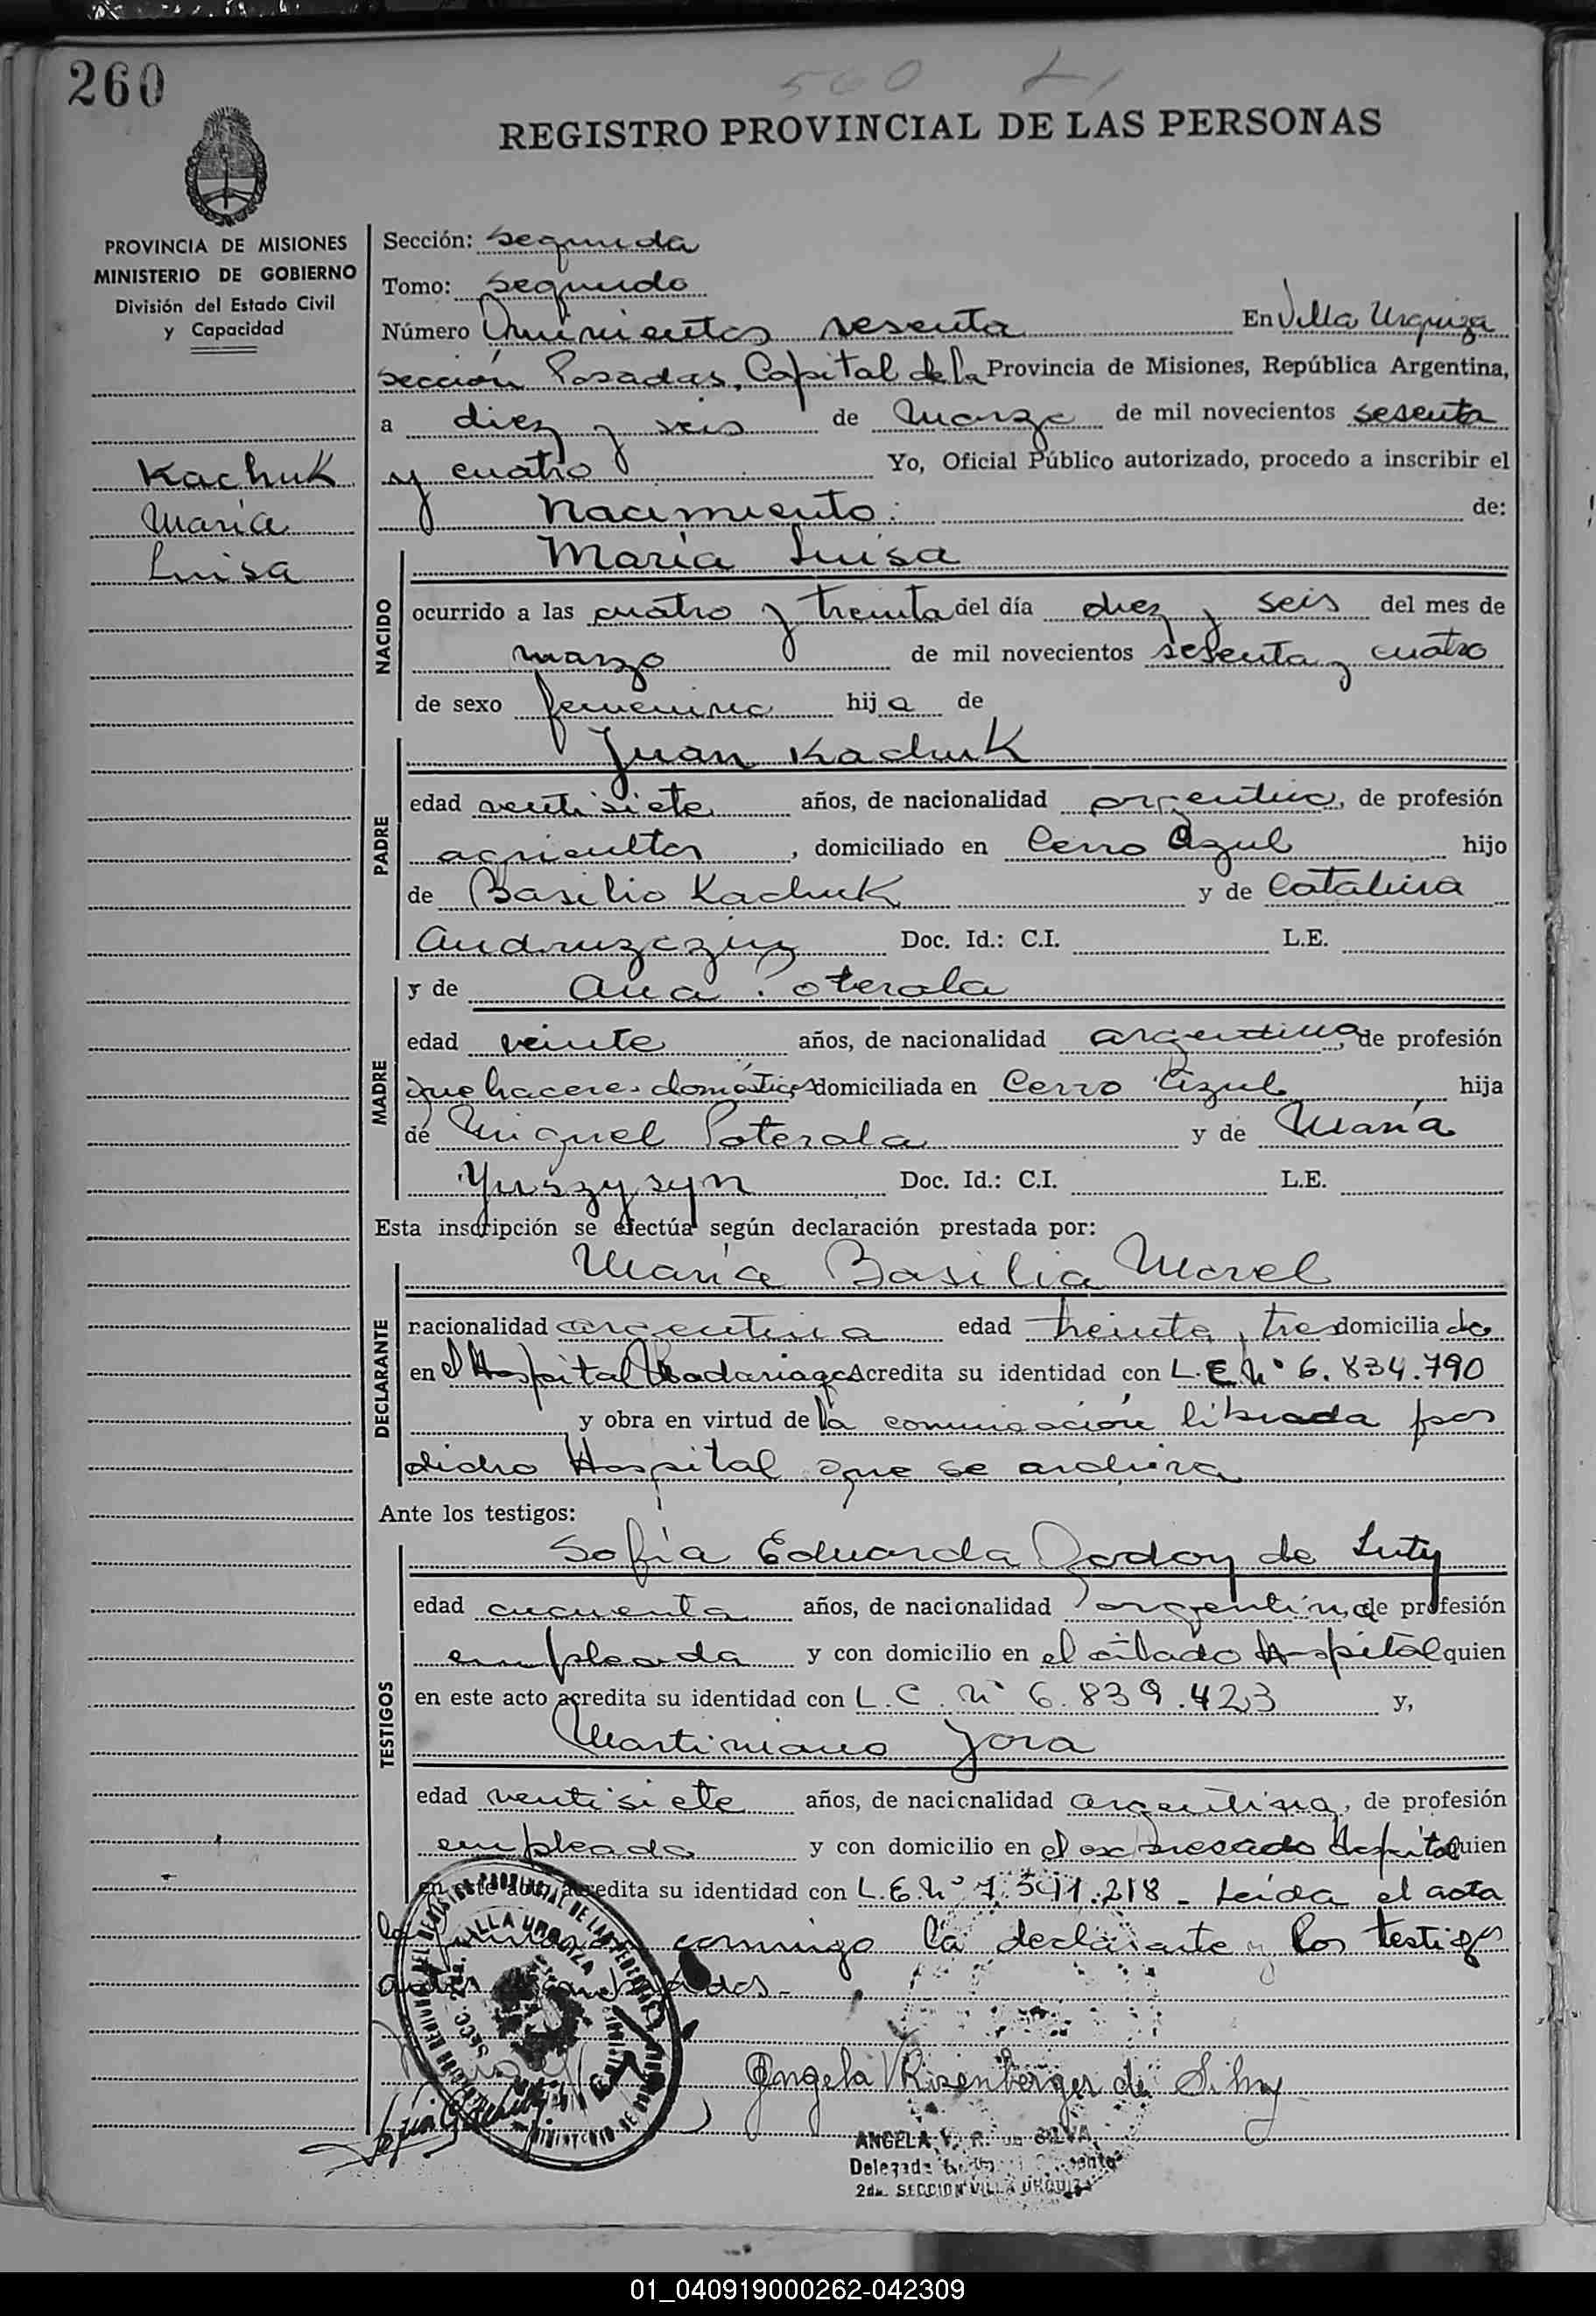 260
560 L1
REGISTRO PROVINCIAL DE LAS PERSONAS
PROVINCIA DE MISIONES
MINISTERIO DE GOBIERNO
División del Estado Civil
y Capacidad
Kachuk
María
Luisa
Sección: Segunda
Tomo: Segundo
Número Quinientos sesenta En Villa Urquiza
sección Posadas, Capital de la Provincia de Misiones, República Argentina,
a diez y seis de Marzo de mil novecientos sesenta
y cuatro Yo, Oficial Público autorizado, procedo a inscribir el
Nacimiento: de:
NACIDO
María Luisa
ocurrido a las cuatro y treinta del día diez y seis del mes de
marzo de mil novecientos sesenta y cuatro
de sexo femenino hija de
PADRE
Juan Kachuk
edad ventisiete años, de nacionalidad argentino, de profesión
agricultor, domiciliado en Cerro Azul hijo
de Basilio Kachuk y de Catalina
Andruzczyz Doc. Id.: C.I. L.E.
MADRE
y de Ana Poterala
edad veinte años, de nacionalidad argentina, de profesión
quehaceres domésticos domiciliada en Cerro Azul hija
de Miguel Poterala y de María
Yuszysyn Doc. Id.: C.I. L.E.
Esta inscripción se efectúa según declaración prestada por:
DECLARANTE
María Basilia Morel
nacionalidad argentina edad treinta y tres domicilia da
en el Hospital Madariaga Acredita su identidad con L.E. Nº 6.834.790
y obra en virtud de la comunicación librada por
dicho Hospital que se archiva
Ante los testigos:
TESTIGOS
Sofía Eduarda Godoy de Luty
edad cucuenta años, de nacionalidad argentina, de profesión
empleada y con domicilio en el citado Hospital quien
en este acto acredita su identidad con L.C. Nº 6.839.423 y,
Martiniano Jara
edad ventisiete años, de nacionalidad argentina, de profesión
empleado y con domicilio en el expresado Hospital quien
en este acto acredita su identidad con L.E. Nº 7.541.218 - Leída el acta
la conmigo la declarante y los testigos
antes -
Angela V Risenberger de Silva
ANGELA V. R. de SILVA
2da. SECCION VILLA URQUIZA
01_040919000262-042309